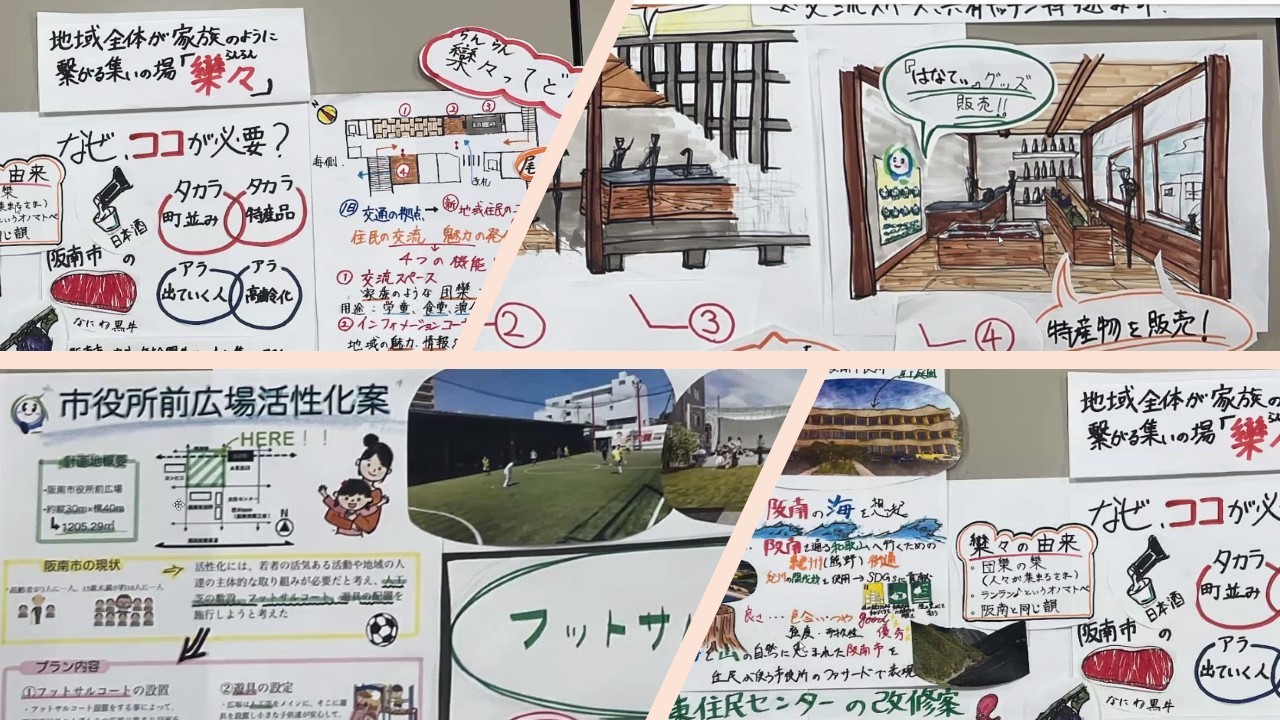 地域全体が家族のように
繋がる集いの場「欒々」
らんらん
なぜ、ココが必要?
由来
タカラ
町並み
タカラ
特産品
日本酒
阪南市の
アラ
出ていく人
アラ
高齢化
なにわ黒牛
らんらん
欒々ってど
N
①
②
③
④
海側
改札
旧 交通の拠点→新 地域住民の
住民の交流、魅力の発
4つの機能
① 交流スペース
家族のような団欒
用途:学童、食堂、
② インフォメーションコー
地域の魅力、情報
②
③
④
『はなてぃ』グッズ
販売!!
特産物を販売!
市役所前広場活性化案
HERE!!
計画地概要
・阪南市役所前広場
・約縦30m×横40m
↳1205.29㎡
N
阪南市の現状
活性化には、若者の活気ある活動や地域の人
達の主体的な取り組みが必要だと考え、人工
芝の敷設、フットサルコート、遊具の配置を
施行しようと考えた
プラン内容
①フットサルコートの設置
・フットサルコート設置をする事によって、
②遊具の設定
・広場は人工芝をメインに、そこに遊
具を設置し小さな子供達が安心して、
フットサル
阪南の海を想起
阪南を通る和歌山へ行くための
紀州(熊野)街道
紀州の間伐材を使用→SDGsに貢献
良さ…色合いつや good
強度・耐久性 優秀
山の自然に恵まれた阪南市を
住民が使う市役所のファサードで表現
東住民センターの改修案
欒々の由来
・団欒の欒
(人々が集まるさま)
・ランラン♪というオノマトペ
・阪南と同じ韻
地域全体が家族の
繋がる集いの場「欒
なぜ、ココが必
タカラ
町並み
日本酒
阪南市の
アラ
出ていく人
なにわ黒牛